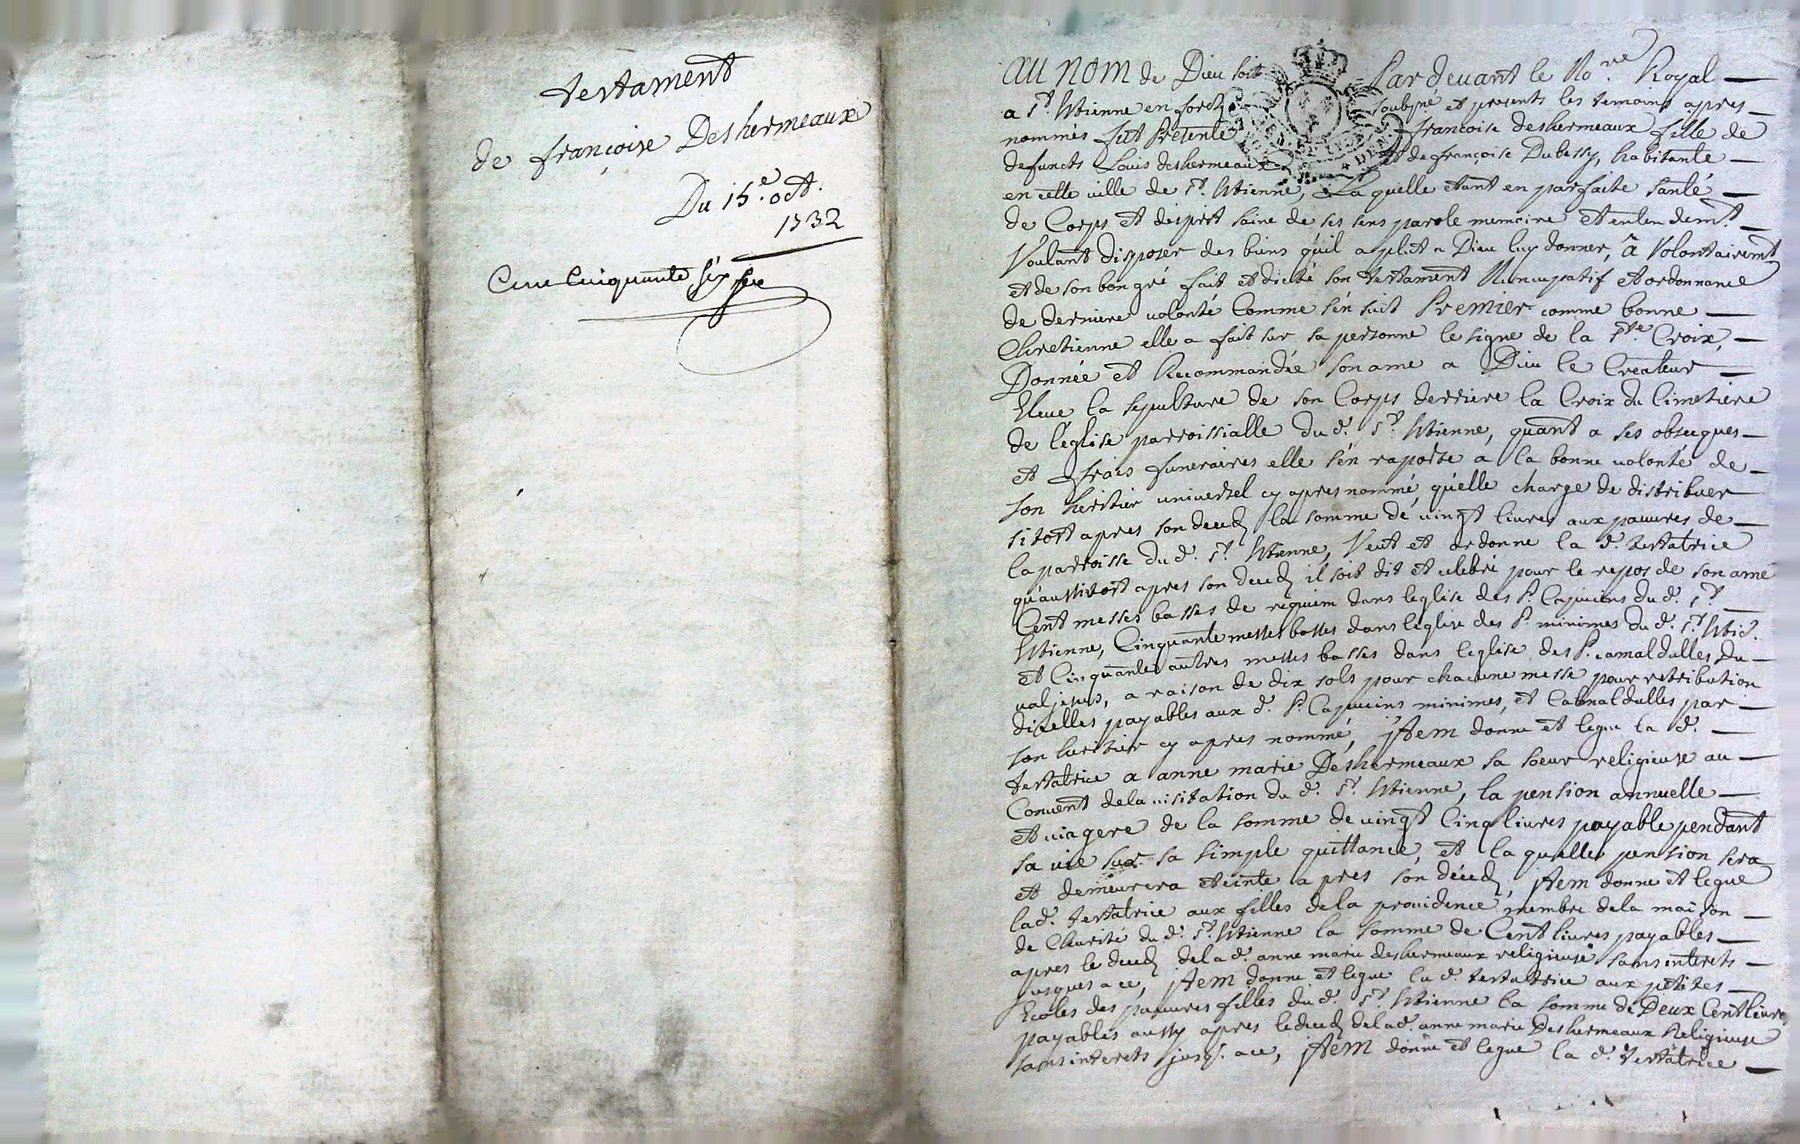 testament
de françoise Deshermeaux
Du 15.e oct.
1732
Cent Cinquante six
au nom de Dieu soit Pardevant le No.re Royal
a S.t Etienne en forest soubsné et presents les temoins apres
nommés fut Presente françoise deshermeaux fille de
defuncts Louis deshermeaux et de françoise Dubessy, habitante
en cette ville de S.t Etienne, La quelle etant en parfaite santé
de Corps et desprit saine de ses sens parole memoire et entendem.t
Voulant disposer des biens quil a plut a Dieu luy donner, â Volontairem.t
et de son bon gré fait et dicté son testament Nuncupatif et ordonnance
de derniere volonté Comme s'en suit Premier comme bonne
Chretienne elle a fait sur sa personne le signe de la S.te Croix,
Donnée et Recommandée son ame a Dieu le Createur
Eleue la sepulture de son Corps derriere la Croix du Cimetiere
de l'eglise parroissialle du d. S.t Etienne, quant a ses obseques
et frais funeraires elle s'en raporte a la bonne volonté de
son heritier universel cy apres nommé, qu'elle charge de distribuer
sitost apres son deced la somme de vingt livres aux pauvres de
la parroisse du d. S.t Etienne, Veut et ordonne la d. testatrice
qu'aussitost apres son deced il soit dit et celebré pour le repos de son ame
Cent messes basses de requiem dans leglise des P. Capucins du d. S.t
Etienne, Cinquante messes basses dans leglise des P. minimes du d. S.t Etie.
et Cinquante autres messes basses dans leglise des P. camaldulles du
val jesus, a raison de dix sols pour chacune messe pour retribution
dicelles payables aux d. P. Capucins minimes, et Camaldulles par
son heritier cy apres nommé, jtem donne et legue la d.
testatrice a anne marie Deshermeaux sa soeur religieuse au
Convent de la visitation du d. S.t Etienne, la pension annuelle
et viagere de la somme de vingt Cinq livres payable pendant
sa vie sur sa simple quittance, et la quelle pension sera
et demeurera eteinte apres son déced, jtem donne et legue
lad. testatrice aux filles de la providence membre de la maison
de Charité du d. S.t Etienne la somme de Cent livres payables
apres le deced de la d. anne marie deshermeaux religieuse sans interets
jusques a ce, jtem donne et legue la d. testatrice aux petites
Ecoles des pauvres filles du d. S.t Etienne la somme de Deux Cent livres
payables aussy apres le deced de la d. anne marie Deshermeaux Religieuse
sans interets jusq. a ce, jtem donne et legue la d. Testatrice